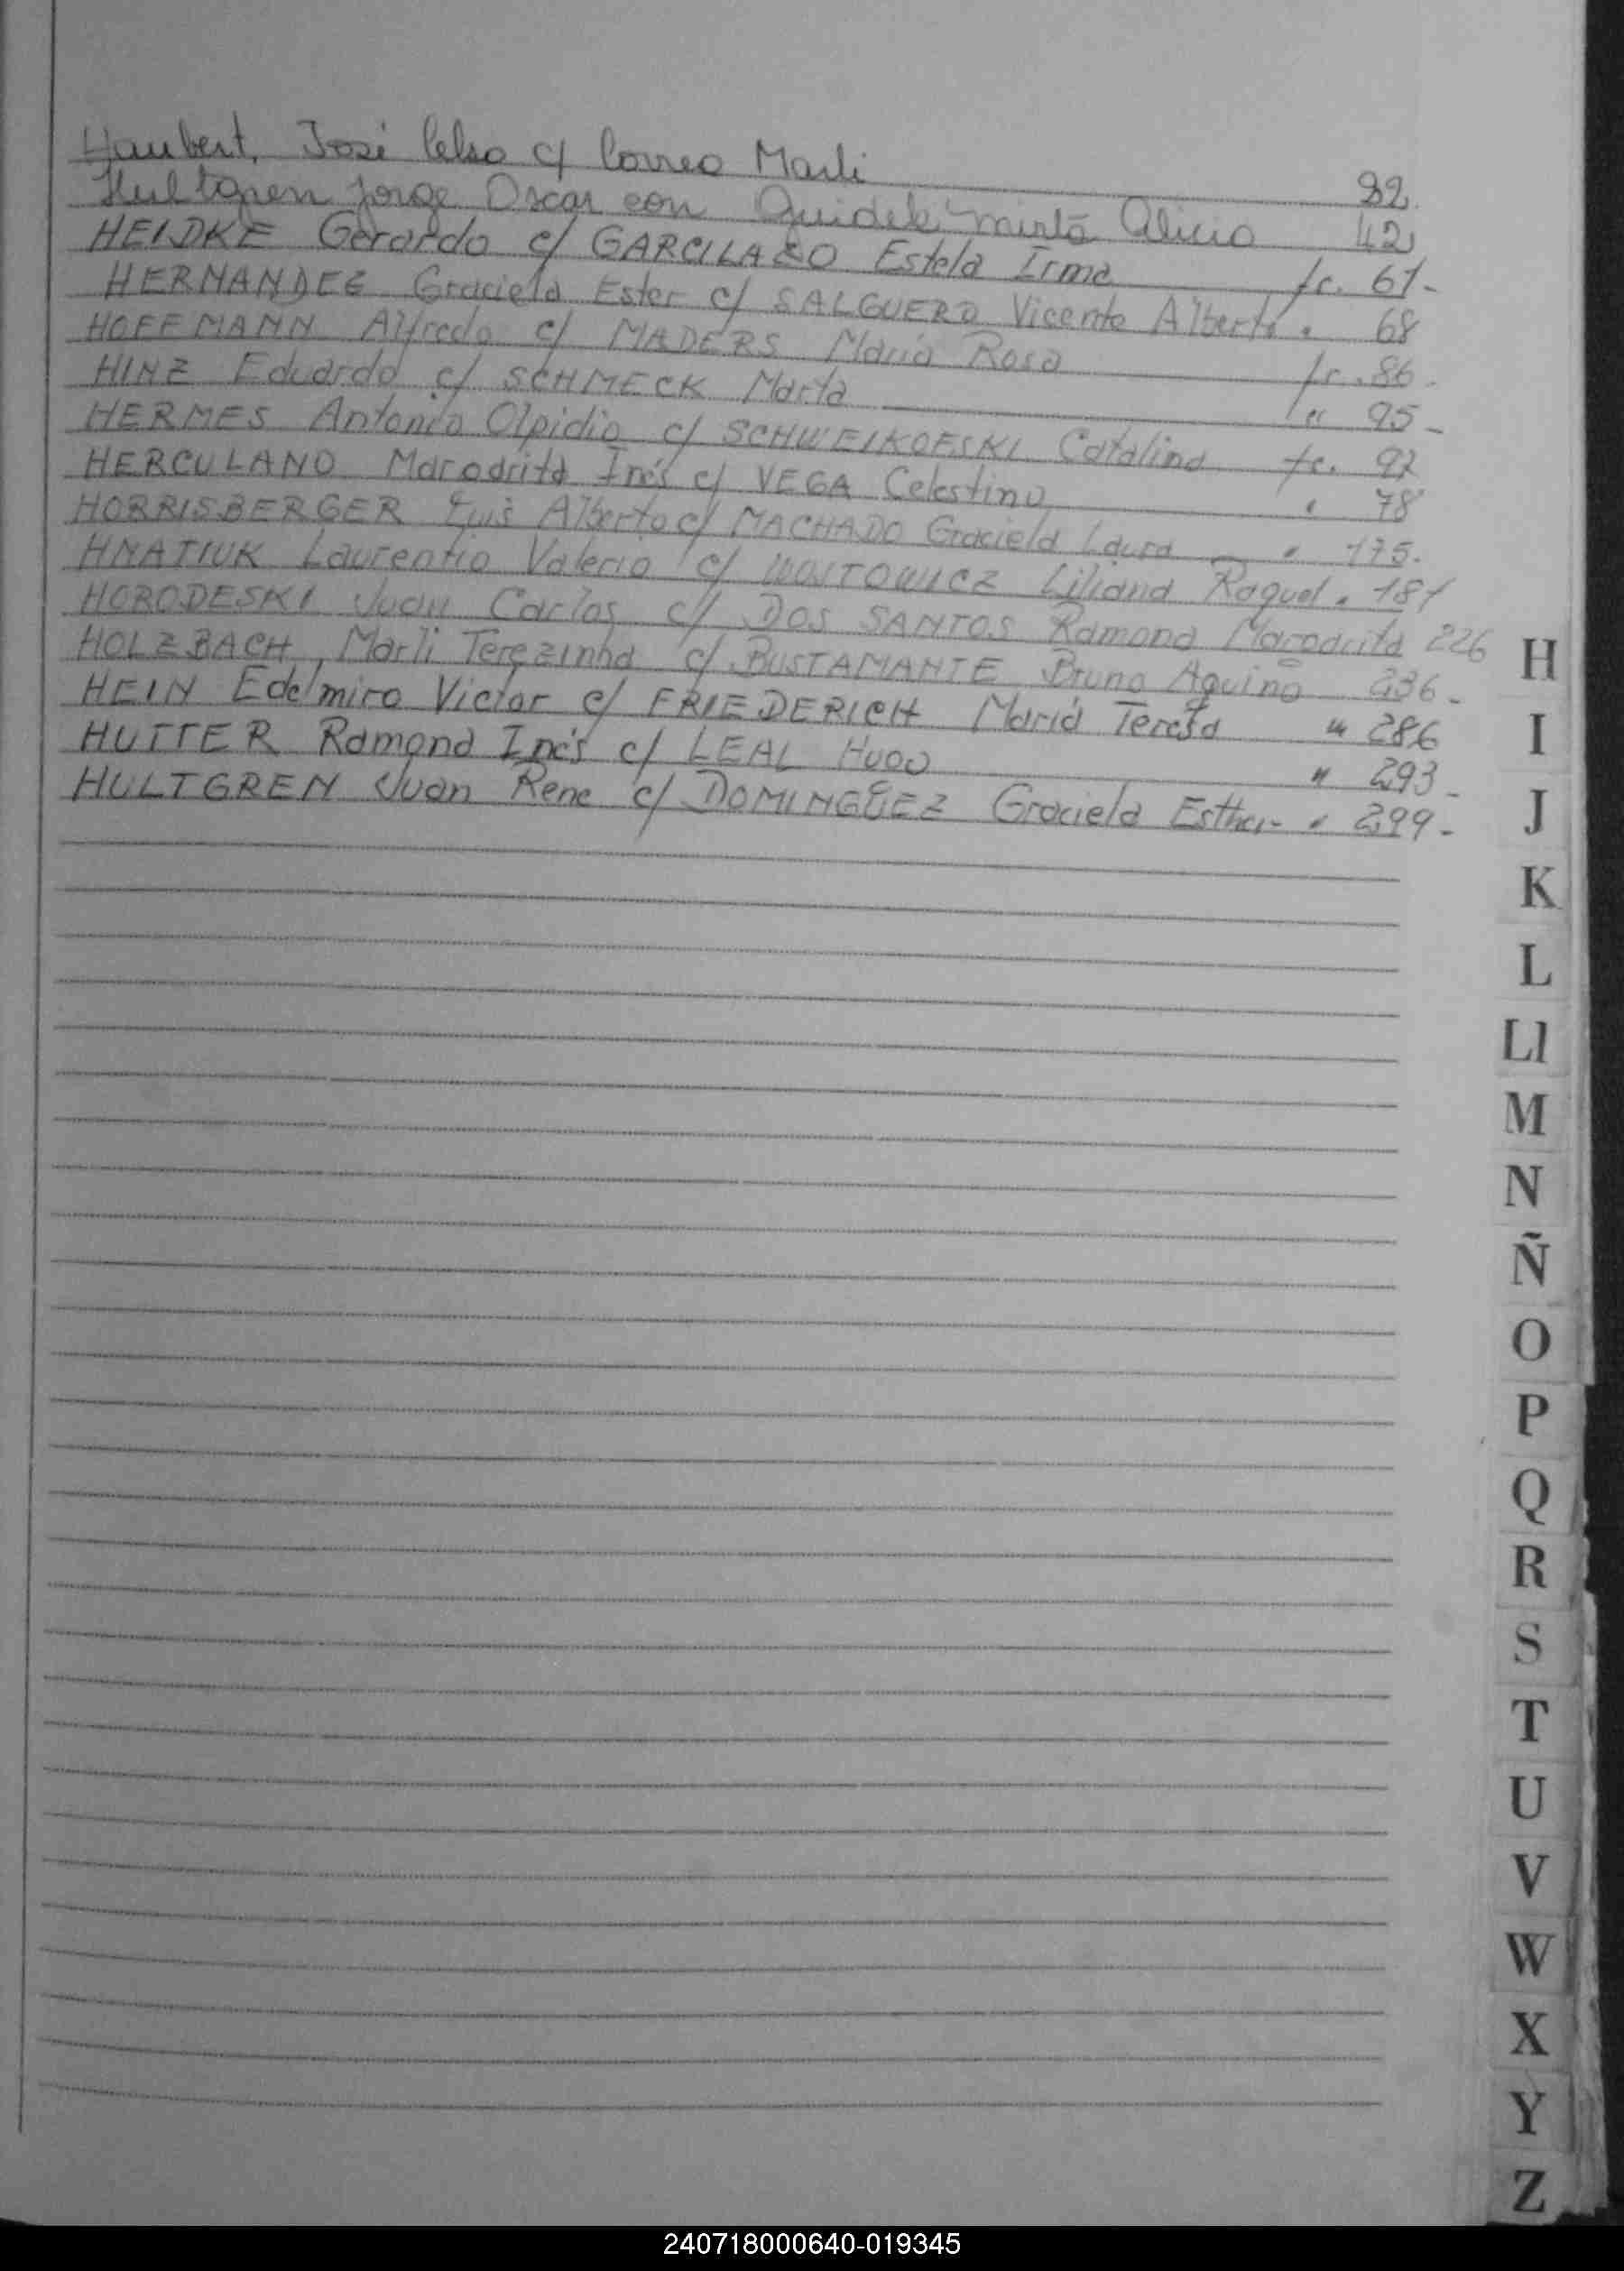 Haubert, José Celso c/ Correo Marli 32
Hultgren Jorge Oscar con Guidek mirta Alicia 42
HEIDKE Gerardo c/ GARCILAZO Estela Irma fc. 61-
HERNANDEZ Graciela Ester c/ SALGUERO Vicente Alberto " 68
HOFFMANN Alfredo c/ MADERS Maria Rosa fc. 86-
HINZ Eduardo c/ SCHMECK Marta 95-
HERMES Antonio Olpidio c/ SCHWEIKOFSKI Catalina fc. 92
HERCULANO Margarita Inés c/ VEGA Celestino " 78
HORRISBERGER Luis Alberto c/ MACHADO Graciela Laura - " 175.
HNATIUK Laurentio Valerio c/ WOJTOWICZ Liliana Raquel " 181
HORODESKI Juan Carlos c/ DOS SANTOS Ramona Margarita 226
HOLZBACH, Marli Terezinha c/ BUSTAMANTE Bruno Aquino 236-
HEIN Edelmiro Victor c/ FRIEDERICH María Teresa " 286
HUTTER Ramona Inés c/ LEAL Hugo " 293-
HULTGREN Juan Rene c/ DOMINGÜEZ Graciela Esther- " 299-
H
I
J
K
L
Ll
M
N
Ñ
O
P
Q
R
S
T
U
V
W
X
Y
Z
240718000640-019345